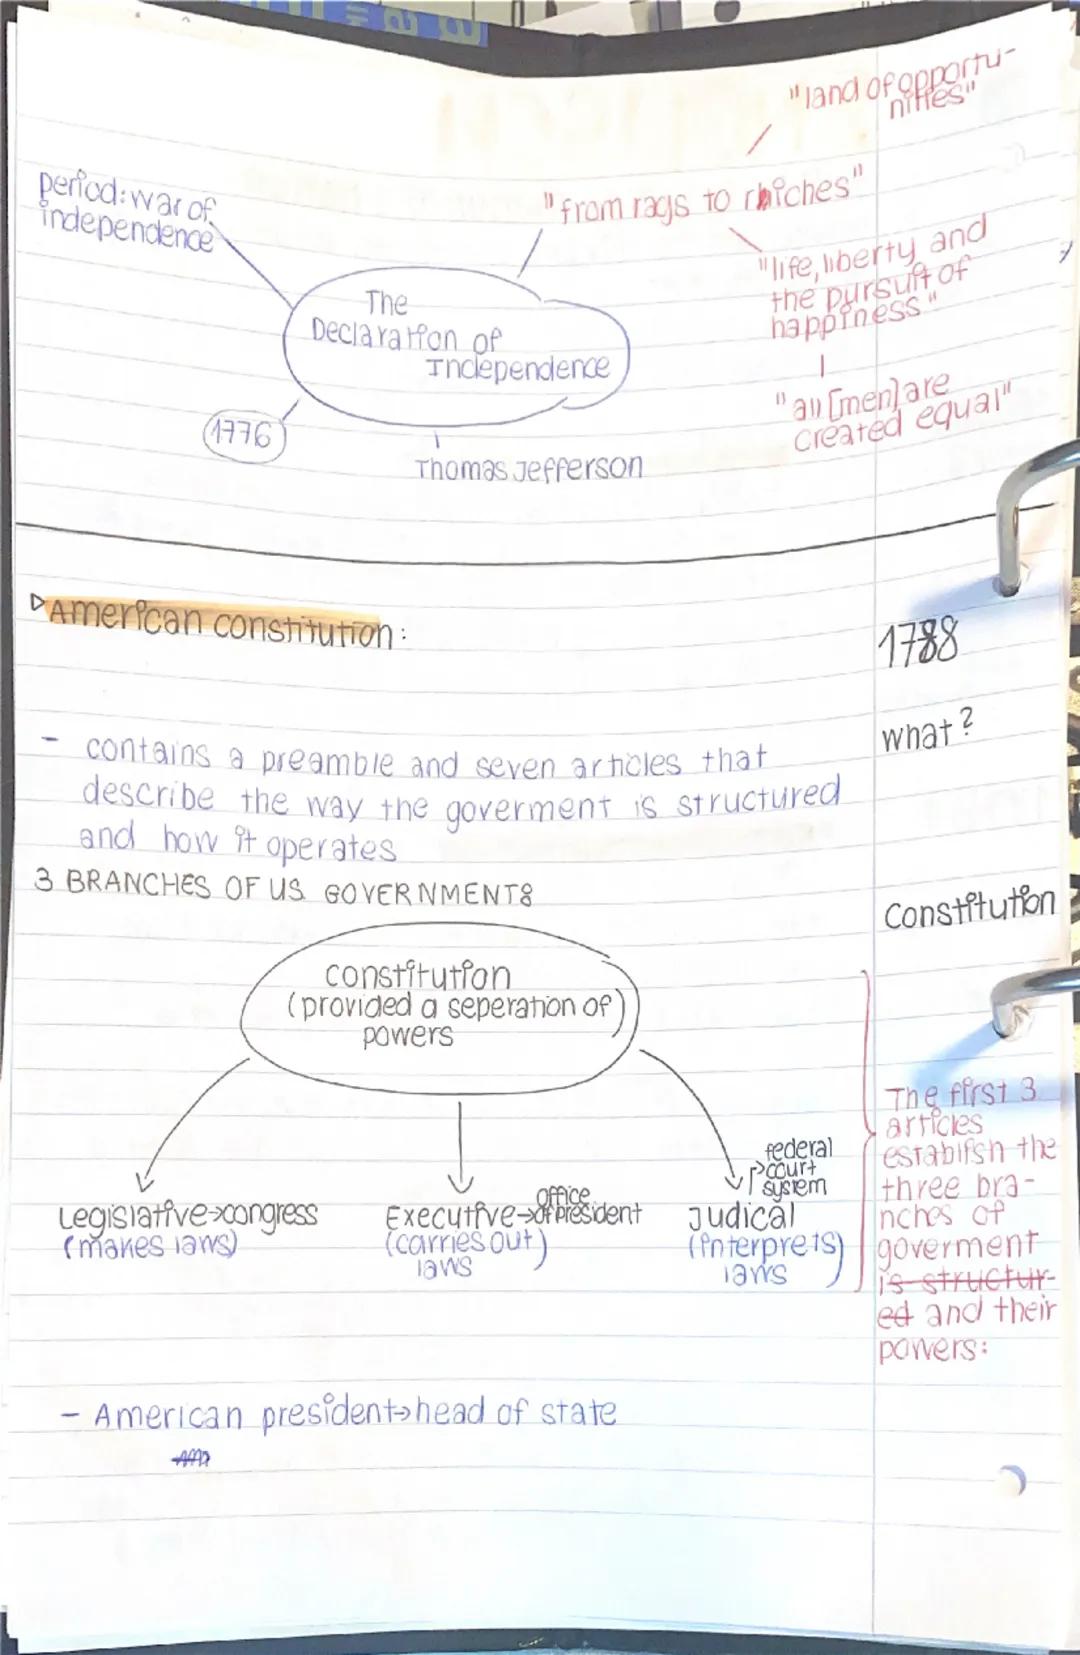 "land of opportu-
nities"
period: war of
independence
"from rags to rhiches"
"life, liberty and
the pursuit of
happiness"
The
Declaration of
Independence
"all [men] are
created equal"
1776
Thomas Jefferson
▷ American constitution:
1788
what?
- contains a preamble and seven articles that
describe the way the goverment is structured
and how it operates
3 BRANCHES OF US GOVERNMENT:
Constitution
constitution
(provided a seperation of)
powers
The first 3
articles
establish the
three bra-
nches of
goverment
is structur-
ed and their
powers:
Legislative→congress
(makes laws)
Executive→office
of president
(carries out)
laws
federal
court
system
Judical
(interprets)
laws
- American president→head of state